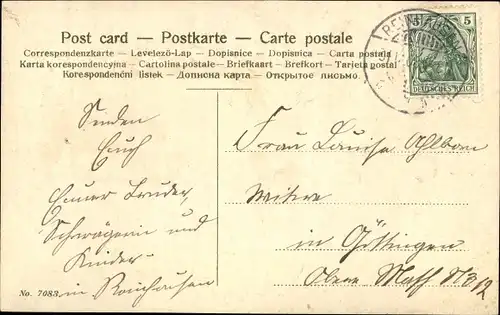 Post card — Postkarte — Carte postale
Correspondenzkarte — Levelező-Lap — Dopisnice — Dopisnica — Carta postala
Karta korespondencyjna — Cartolina postale — Briefkaart — Brefkort — Tarjeta postal
Korespondenční listek — Дописна карта — Открытое письмо.
5
DEUTSCHES REICH
Senden
Euch
Euer Bruder,
Schwägerin und
Kinder
in Reinhausen
No. 7083
Frau Louise Ahlborn
Witwe
in Göttingen
Obere Masch No 12